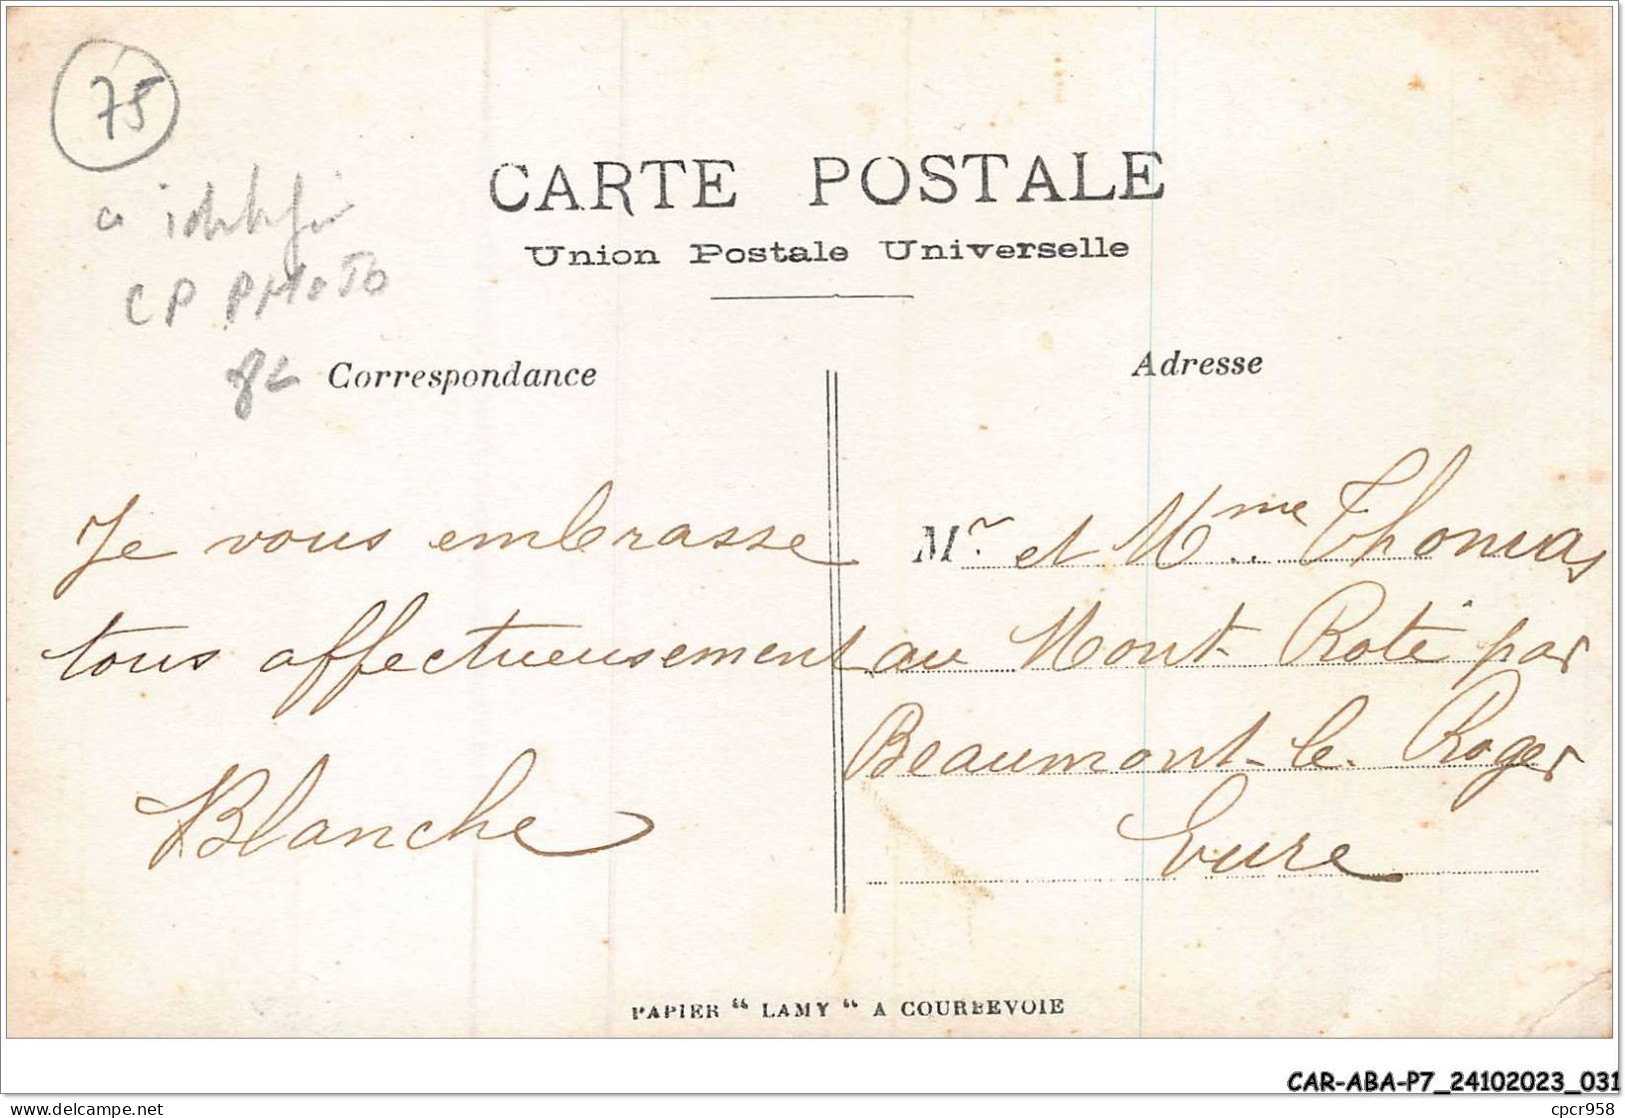 75
a identifier
CP PHOTO
CARTE POSTALE
Union Postale Universelle
Correspondance
Adresse
Je vous embrasse
tous affectueusement
Blanche
Mr. et Mme Thomas
au Mont-Roté par
Beaumont-le-Roger
Eure
PAPIER " LAMY " A COURBEVOIE
CAR-ABA-P7_24102023_031
delcampe.net
cpcr958